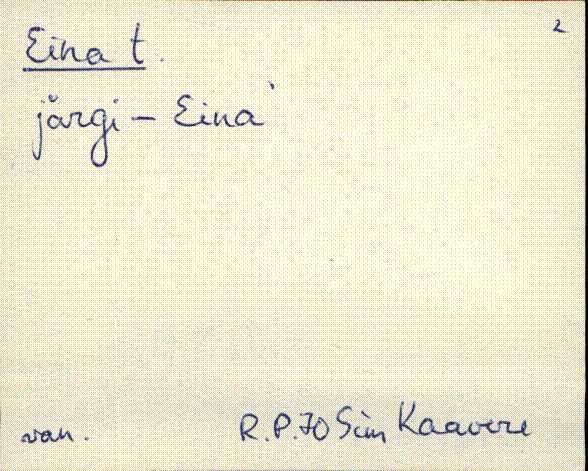 2
Eina t.
järgi – Eina'
van. R.P. 70 Sim Kaavere